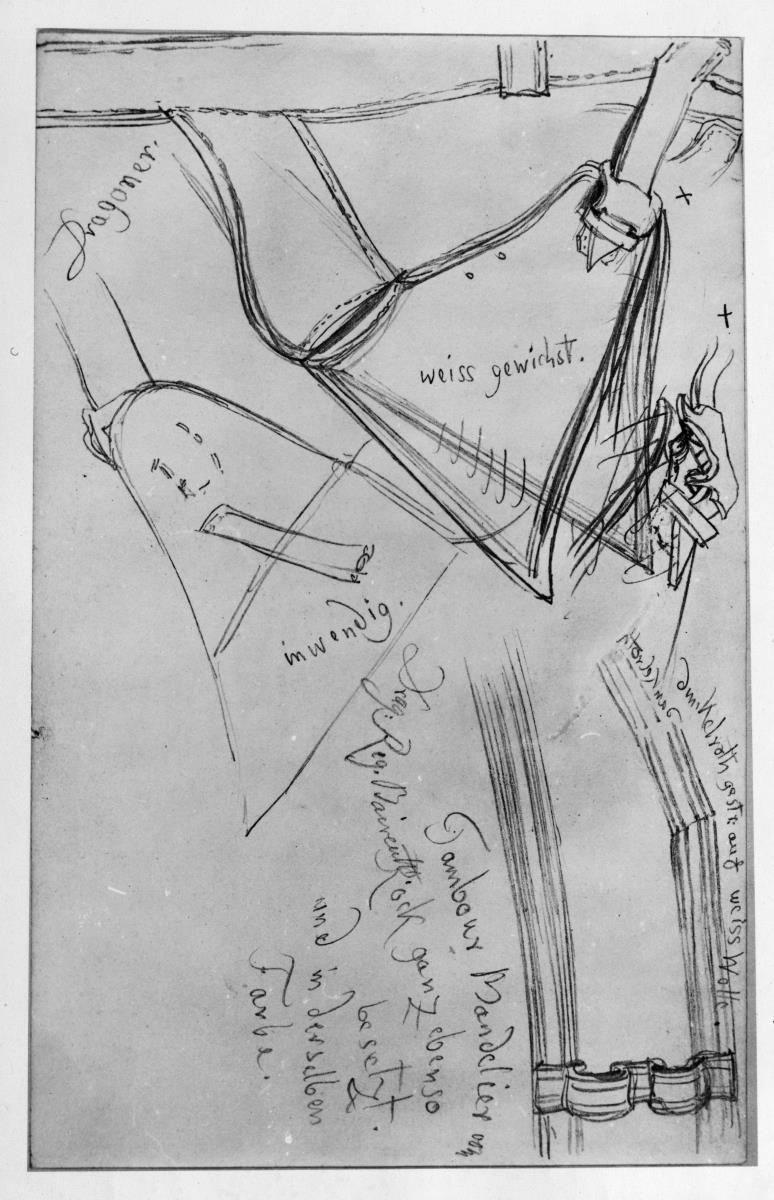 Dragoner.
weiss gewichst.
inwendig.
Dunkelroth
Dunkelroth gestr: auf weiss Wolle.
Tambour Bandelier vom
Drag: Reg. Baireuth. Rock ganz ebenso
besetzt.
und in derselben
Farbe.